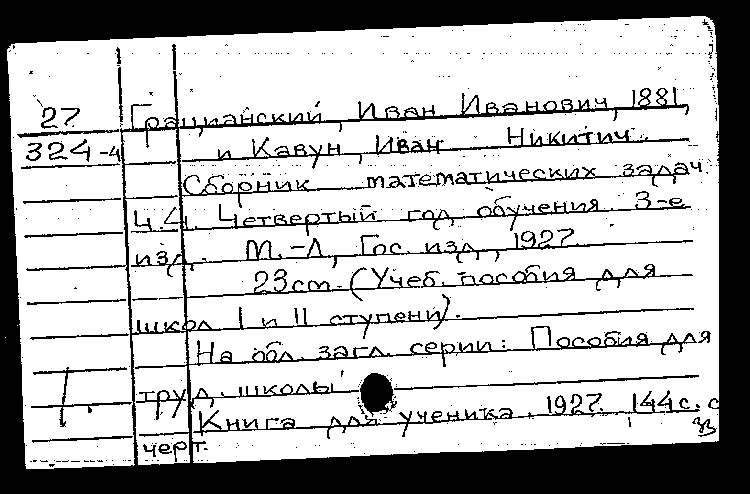 27 Грацианский, Иван Иванович, 1881,
324-4 и Кавун, Иван Никитич.
Сборник математических задач
Ч.4. Четвертый год обучения. 3-е
изд. М.-Л., Гос. изд., 1927.
23 cm. (Учеб. пособия для
школ I и II ступени).
На обл. загл. серии: Пособия для
1. труд. школы
Книга для ученика. 1927. 144 с. с
черт.